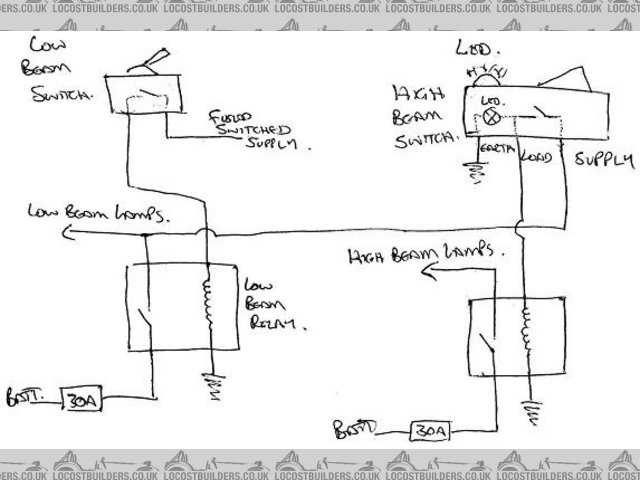 LOCOSTBUILDERS.CO.UK LOCOSTBUILDERS.CO.UK LOCOSTBUILDERS.CO.UK LOCOSTBUILDERS.CO.UK
LOW
BEAM
SWITCH.
FUSED
SWITCHED
SUPPLY.
LED.
HIGH
BEAM
SWITCH.
LED.
EARTH
LOAD
SUPPLY
LOW BEAM LAMPS.
HIGH BEAM LAMPS.
LOW
BEAM
RELAY.
BATT.
30A
BATT
30A
LOCOSTBUILDERS.CO.UK LOCOSTBUILDERS.CO.UK LOCOSTBUILDERS.CO.UK LOCOSTBUILDERS.CO.UK